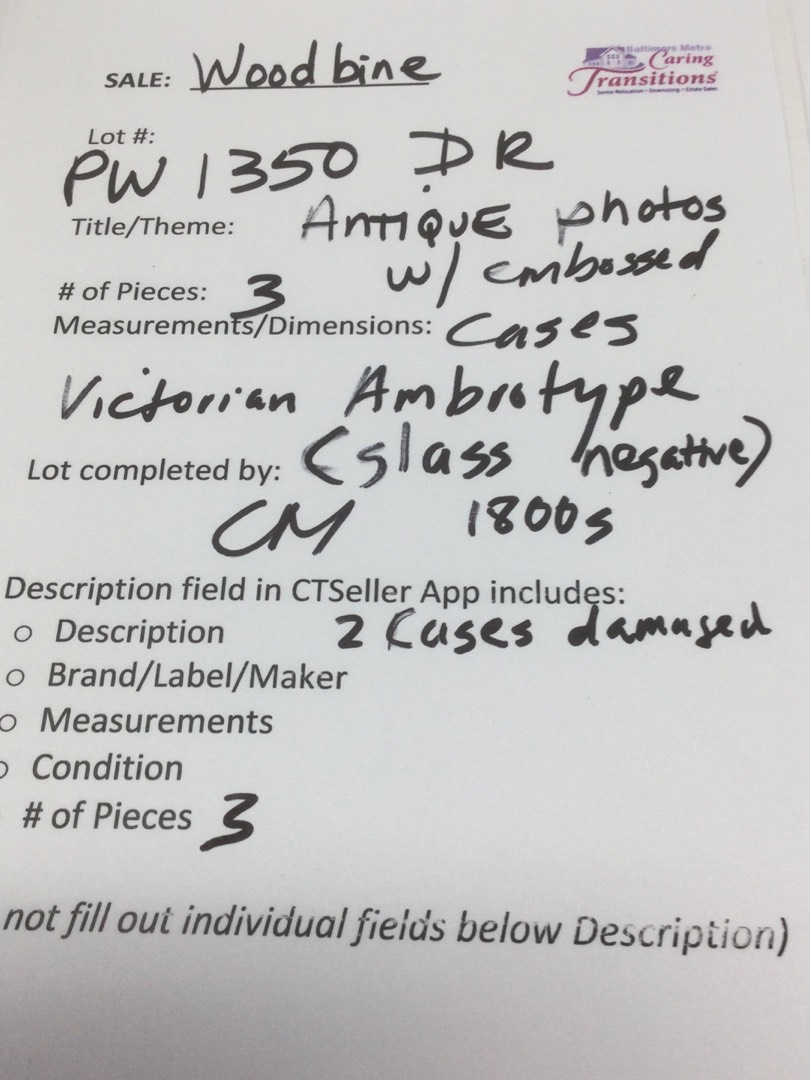 SALE: Woodbine
Baltimore Metro
Caring
Transitions
Senior Relocation • Downsizing • Estate Sales
Lot #:
PW 1350 DR
Title/Theme: ANTIQUE photos
w/ embossed
# of Pieces: 3
Measurements/Dimensions: Cases
Victorian Ambrotype
Lot completed by: (glass negative)
CM 1800s
Description field in CTSeller App includes:
o Description 2 Cases damaged
o Brand/Label/Maker
o Measurements
o Condition
# of Pieces 3
not fill out individual fields below Description)